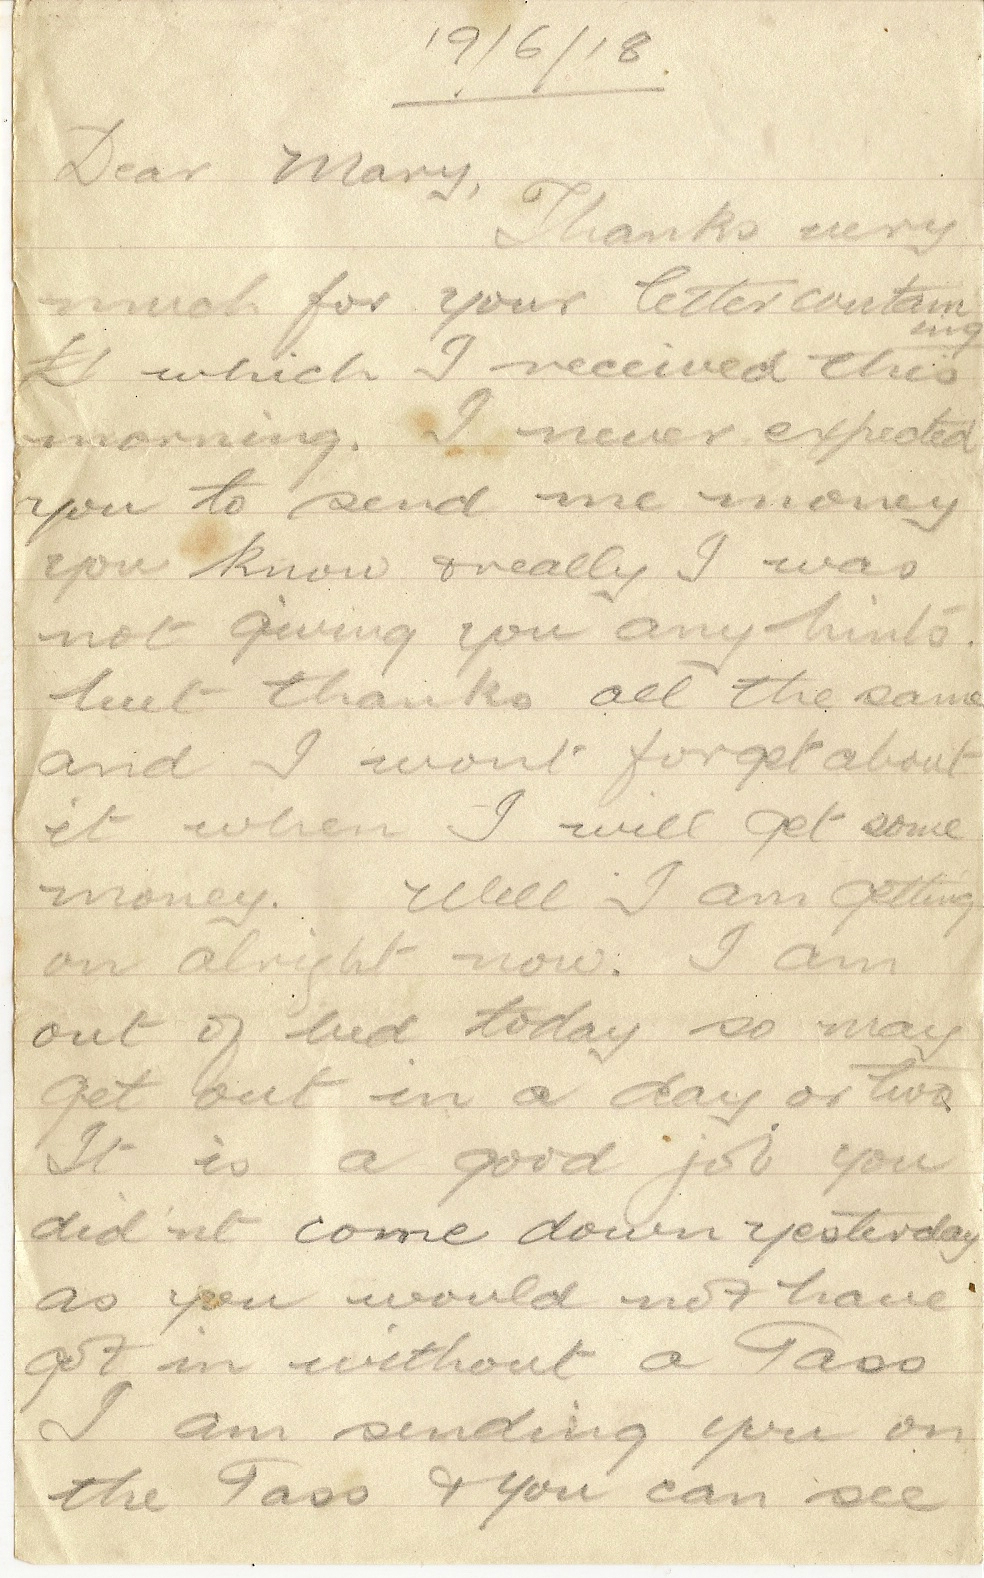 19/6/18.
Dear Mary,
Thanks very
much for your letter contain
ing
£1 which I received this
morning. I never expected
you to send me money
you know & really I was
not giving you any hints.
but thanks all the same
and I wont forget about
it when I will get some
money. Well I am getting
on alright now. I am
out of bed today so may
get out in a day or two
It is a good job you
did'nt come down yesterday
as you would not have
got in without a Pass
I am sending you on
the Pass & you can see